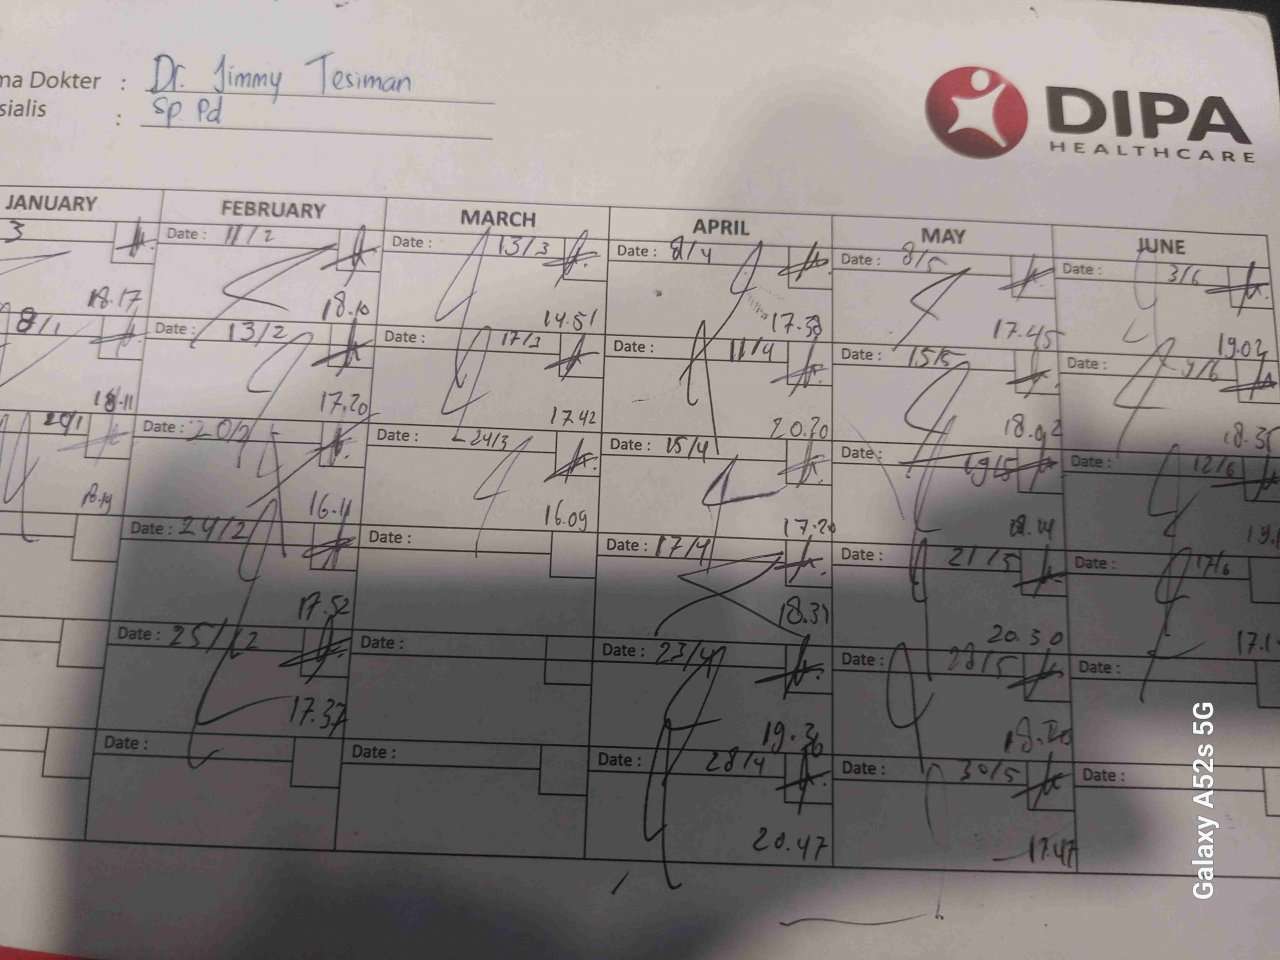 ma Dokter : Dr. Jimmy Tesiman
sialis : Sp Pd
DIPA
HEALTHCARE
JANUARY FEBRUARY MARCH APRIL MAY JUNE
3 Date : 11/2 Date : 13/3 Date : 8/4 Date : 8/5 Date : 3/6
18.17 18.10 14.51 17.38 17.45 19.02
8/1 Date : 13/2 Date : 17/3 Date : 11/4 Date : 15/5 Date : 9/6
18.11 17.20 17.42 20.20 18.02 18.35
Date : 20/2 Date : 24/3 Date : 15/4 Date : 19/5 Date : 12/6
18.19 16.11 16.09 17.20 18.14
Date : 24/2 Date : Date : 17/4 Date : 21/5 Date : 17/6
17.52 18.31 20.30 17.1
Date : 25/2 Date : Date : 23/4 Date : 28/5 Date :
17.37 19.36
Date : Date : Date : 28/4 Date : 30/5 Date :
20.47 17.47
Galaxy A52s 5G